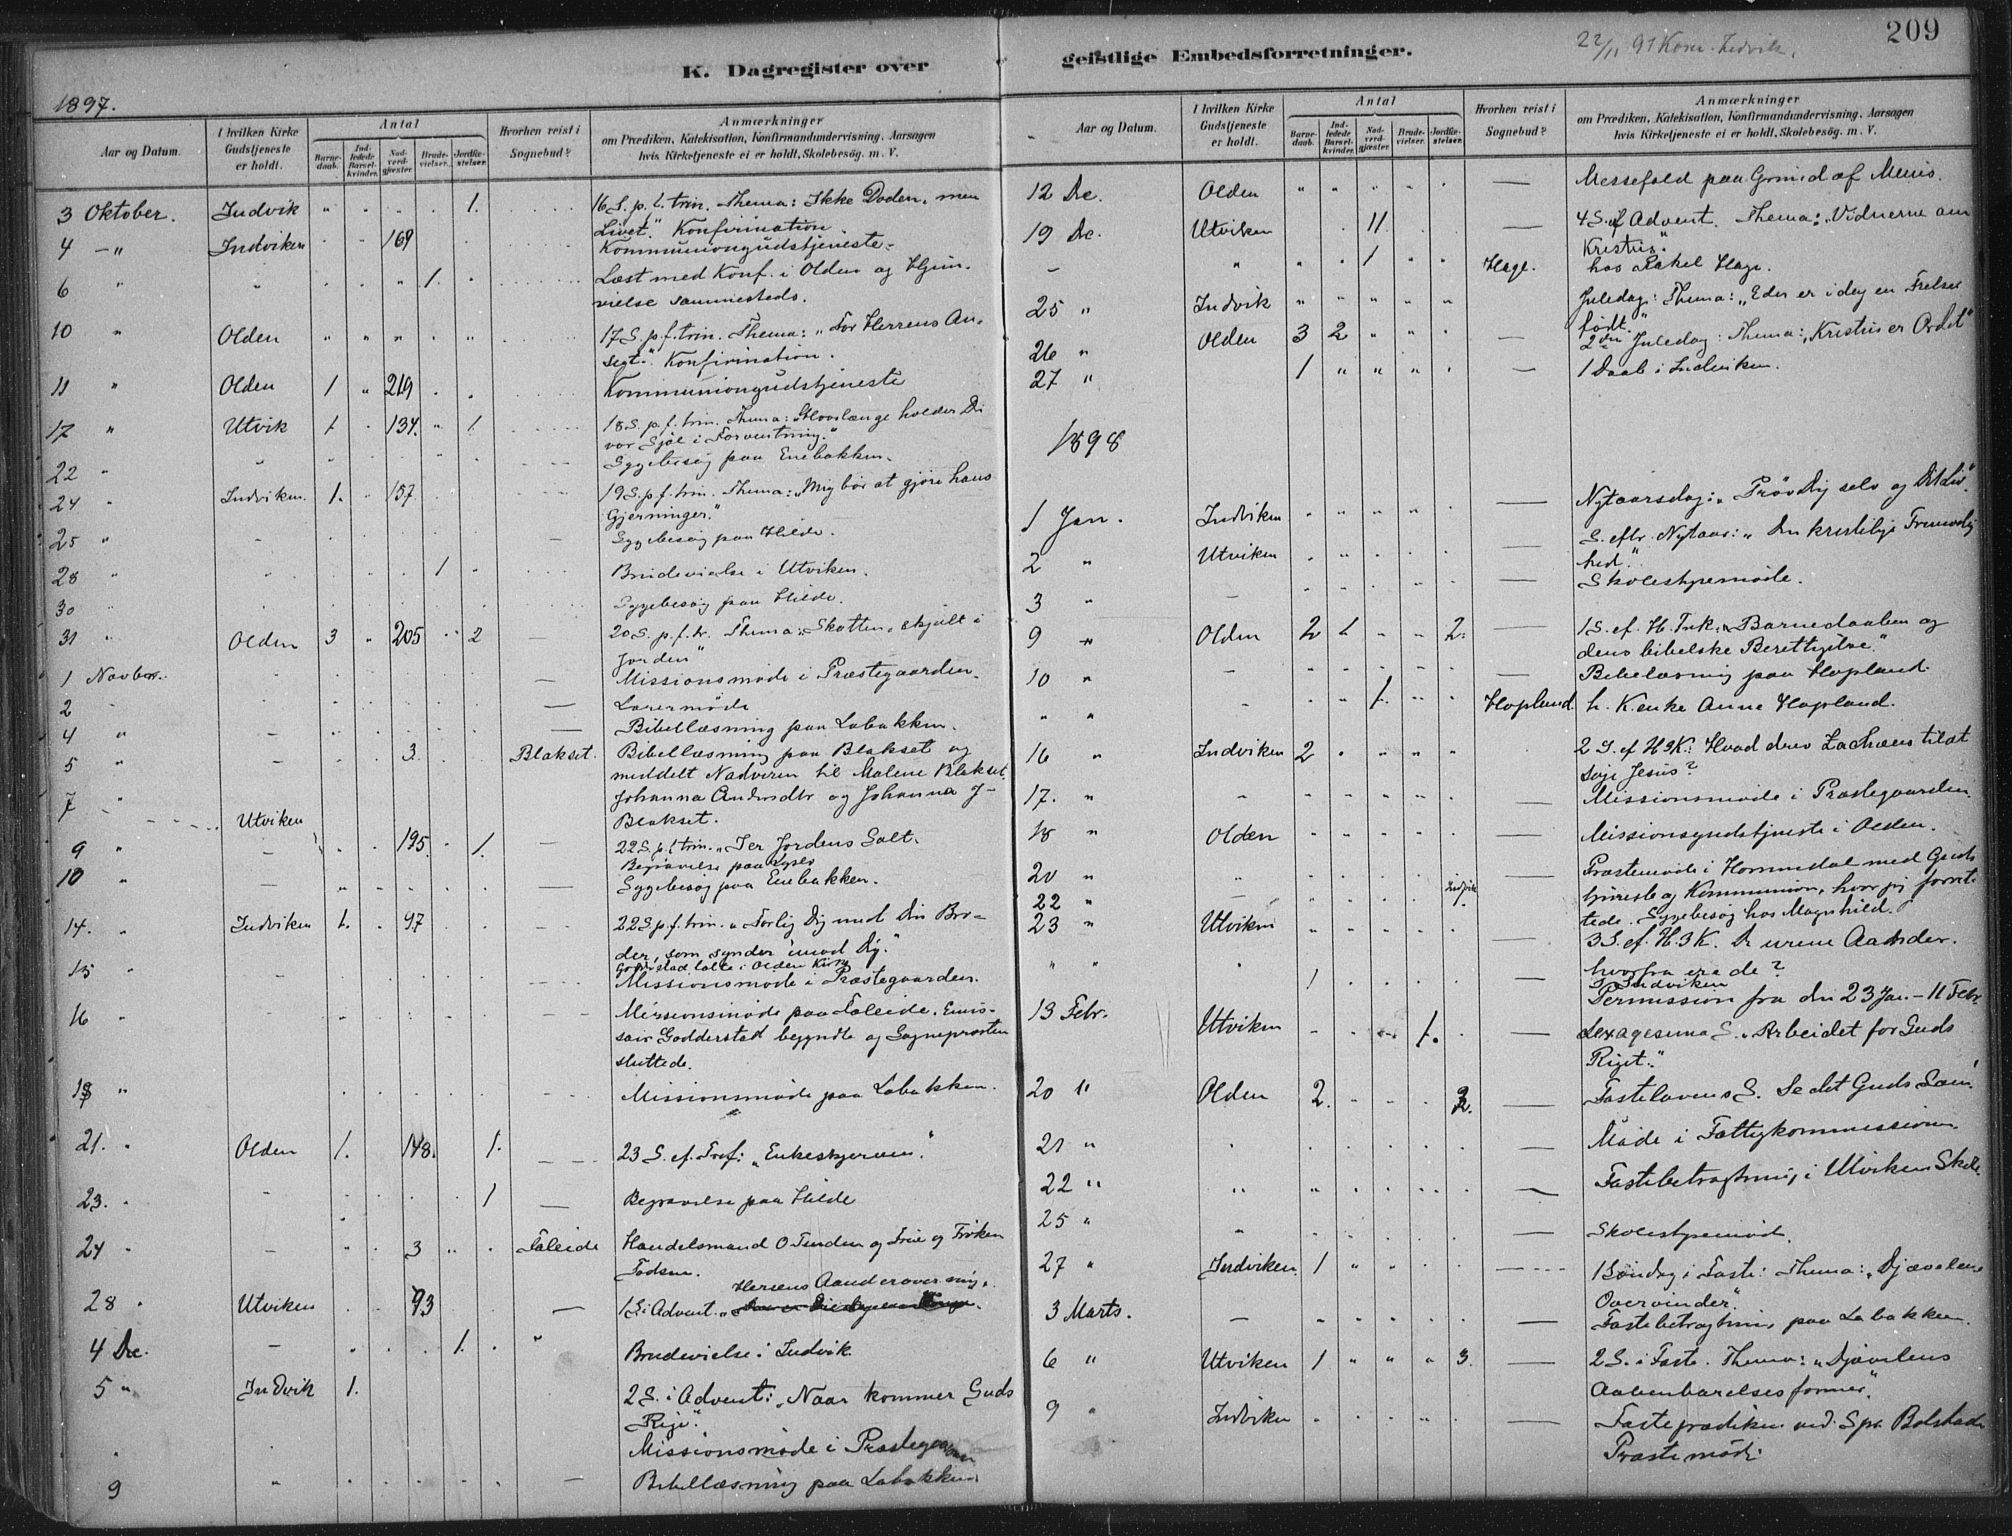 209
22/11 97 Kom. Indvik.
K. Dagregister over geistlige Embedsforretninger.
1897.
Aar og Datum.
I hvilken Kirke Gudstjeneste er holdt.
Antal
Barnedaab.
Indledede Barselkvinder.
Nadverdgjæster.
Brudevielser.
Jordfæstelser.
Hvorhen reist i Sognebud?
Anmærkninger
om Prædiken, Katekisation, Konfirmandundervisning, Aarsagen
hvis Kirketjeneste ei er holdt, Skolebesög. m. V.
3 Oktober. Indvik " " 1. 16 S. p. t. trin. Thema: Ikke Døden, men
Livet." Konfirmation.
4 - " Indviken 169 Kommuniongudstjeneste.
6 " " 1. Læst med Konf. i Olden og Hjem-
vielse sammesteds.
10 " Olden " " " " " 17 S. p. f. trin. Thema: "For Herrens An-
sigt." Konfirmation.
11 " Olden 1 " 219 Kommuniongudstjeneste
17 " Utvik 1 134. " 1. 18 S. p. f. trin. Thema: Hvorlænge holder Du
vor Sjæl i Forventning."
22 " Sygebesøg paa Enebakken.
24 " Indviken. 1. 157. 19 S. p. f. trin. Thema: "Mig bør at gjøre hans
Gjerninger."
25 " Sygebesøg paa Hilde.
28 " 1 Brudevielse i Utviken.
30 " Sygebesøg paa Hilde.
31 " Olden 3 " 205 " 2 — 20 S. p. f. tr. Thema: Skatten, skjult i
Jorden"
1 Novbr. — Missionsmøde i Præstegaarden.
2 " — Lærermøde
4 " — Bibellæsning paa Løbakken.
5 " — 3. Blakset. Bibellæsning paa Blakset og
meddelt Nadveren til Malene Blakset,
Johanna Andersdtr og Johanna J-
Blakset.
7 " Utviken 195. 1. — 22 S. p. t. trin. "I er Jordens Salt.
9 " — Begravelse paa
10 " — Sygebesøg paa Enebakken.
14. " Indviken 1. 97 22 S. p. f. trin. "Forlig Dig med Din Bro-
der, som synder imod Dig."
talte i Olden Kirke
15 " — Missionsmøde i Præstegaarden.
16 " Missionsmøde paa Faleide. Emis-
sær Godderstad begyndte og Sognepræsten
sluttede.
18 " Missionsmøde paa Løbakken.
21. " Olden 1. 148. 1. 23 S. ef. Tref: "Enkeskjerven".
23. " — 1 Begravelse paa Hilde
24 " — 3 Faleide Handelsmand O Tenden og Frue og Frøken
Todsen.
28 " Utviken 93 — 1 S. i Advent. "Herrens Aand er over mig".
4 De. — 1. " Brudevielse i Indvik.
5 " Indvik 1. 2 S. i Advent: "Naar kommer Guds
Rige".
Missionsmøde i Præstegaarden
9 " — Bibellæsning paa Løbakken
Aar og Datum.
I hvilken Kirke Gudstjeneste er holdt.
Antal
Barnedaab.
Indledede Barselkvinder.
Nadverdgjæster.
Brudevielser.
Jordfæstelser.
Hvorhen reist i Sognebud?
Anmærkninger
om Prædiken, Katekisation, Konfirmandundervisning, Aarsagen
hvis Kirketjeneste ei er holdt, Skolebesög. m. V.
12 De. Olden " " " " " — Messefald paa Grund af Menis.
19 De. Utviken 11. — 4 S. ef Advent. Thema: "Vidnerne om
Kristus."
— " " " 1 " " Hage. hos Rakel Hage.
25 " Indvik " " " " " Juledag: Thema: "Eder er i dag en Frelser
født."
26 " Olden 3 2 " " — 2den Juledag: Thema: "Kristus er Ordet"
27 " 1 " " " — 1 Daab i Indviken.
1898
1 Jan. Indviken — Nytaarsdag: "Prøv Dig selv og Dit Liv".
2 " Utviken — S. eftr. Nytaar: "Den kristelige Frimodig
hed."
3 " — — Skolestyremøde.
9 " Olden 2 1 " " 2. — 1 S. ef. H. Trek. "Barnedaaben og
dens bibelske Berettigelse".
10 " — — Bibelæsning paa Hopland.
" " — 1. Hopland h. Kenke Anne Hopland.
16 " Indviken 2 " " " — 2 S. ef H3K: Hvad drev Zachæus til at
søge Jesus?
17. " " — Missionsmøde i Præstegaarden.
18 " Olden — Missionsgudstjeneste i Olden.
20 " " Præstemøde i Hornindal med Guds
tjeneste og Kommunion, hvor jeg forret-
22 " Indvik 1. tede. Sygebesøg hos Magnhild.
23 " Utviken — 3 S. ef. H. 3 K. De urene Aander.
hvorfra ere de?
" " " 1 I Indviken
Permission fra den 23 Jan. - 11 Febr.
13 Febr. Utviken 1. — Sexagesima S. "Arbeidet for Guds
Riget."
20 " Olden 2. 2. — Fastelavens S. Se det Guds Lam!
21 " — Møde i Fattigkommissionen
22 " " — Fastebetragtning i Utvikens Skole
25 " " — Skolestyremøde.
27 " Indviken. 1 " " 1 Søndag i Faste: Thema: "Djævelens
Overvinder".
3 Marts. — — Fastebetragtning paa Løbakken.
6 " Utviken 1 " " " 3. — 2 S. i Faste. Thema: "Djævelens
Aabenbarelsesformer".
9 " Indviken — Fasteprædiken ved Spr. Bolstad
Præstemøde